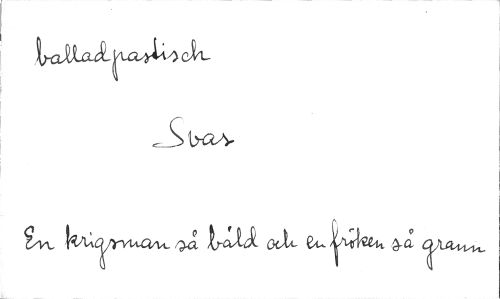 balladpastisch
Svas
En krigsman så båld och en fröken så grann